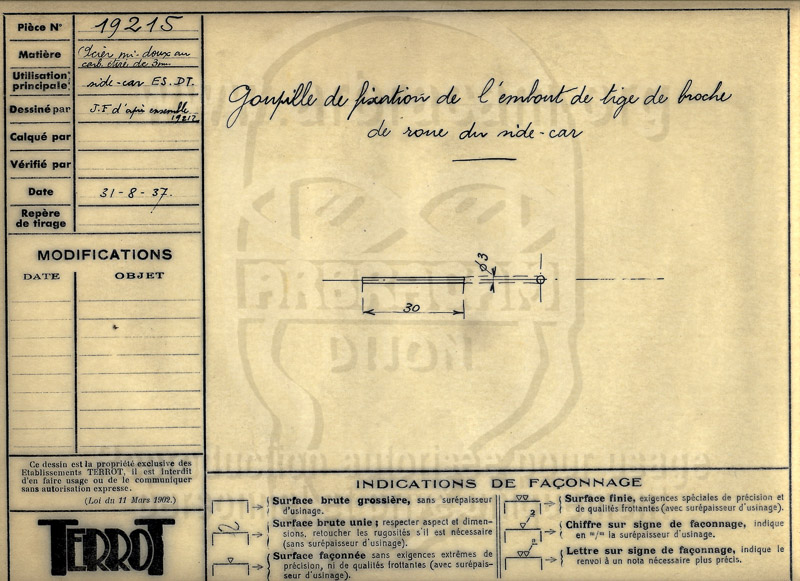 Pièce N° 19215
Matière Acier mi-doux au
carb. étiré de 3mm
Utilisation
principale side-car ES. DT.
Dessiné par J.F d'après ensemble
19217
Calqué par
Vérifié par
Date 31-8-37.
Repère
de tirage
MODIFICATIONS
DATE OBJET
Ce dessin est la propriété exclusive des
Etablissements TERROT, il est interdit
d'en faire usage ou de le communiquer
sans autorisation expresse.
(Loi du 11 Mars 1902.)
TERROT
Goupille de fixation de l'embout de tige de broche
de roue du side-car
ø3
30
DIJON
INDICATIONS DE FAÇONNAGE
Surface brute grossière, sans surépaisseur
d'usinage.
Surface brute unie ; respecter aspect et dimen-
sions, retoucher les rugosités s'il est nécessaire
(sans surépaisseur d'usinage).
Surface façonnée sans exigences extrêmes de
précision, ni de qualités frottantes (avec surépais-
seur d'usinage).
Surface finie, exigences spéciales de précision et
de qualités frottantes (avec surépaisseur d'usinage).
Chiffre sur signe de faconnage, indique
en m/m la surépaisseur d'usinage.
Lettre sur signe de façonnage, indique le
renvoi à un nota nécessaire plus précis.